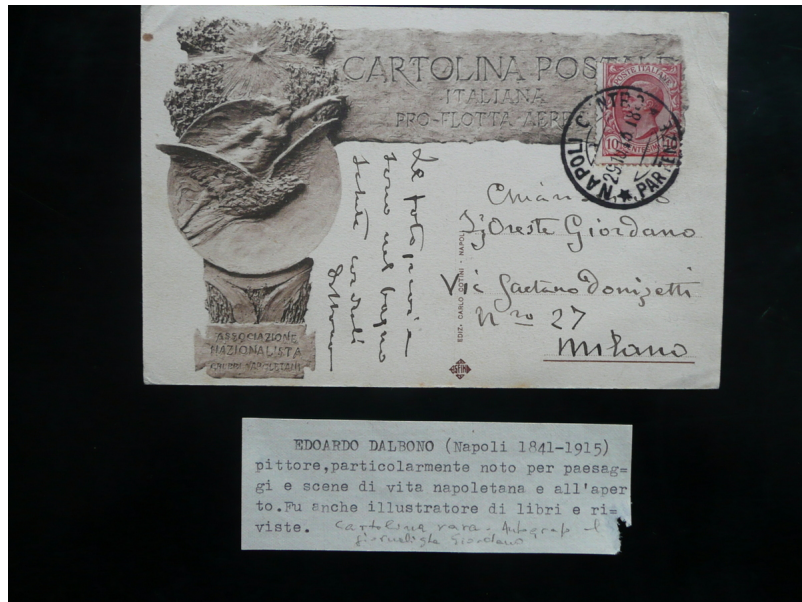 CARTOLINA POSTALE
ITALIANA
PRO-FLOTTA AEREA
POSTE ITALIANE
10 CENTESIMI
NAPOLI CENTRO
PARTENZA
Le fotografie
sono nel bagno
Salute cordiali
Dalbono
EDIZ. CARLO COTINI - NAPOLI
Sig Oreste Giordano
Via Gaetano Donizetti
Nro 27
Milano
ASSOCIAZIONE
NAZIONALISTA
EDOARDO DALBONO (Napoli 1841-1915)
pittore,particolarmente noto per paesag=
gi e scene di vita napoletana e all'aper
to.Fu anche illustratore di libri e ri=
viste. Cartolina rara. Autografo al
giornalista Giordano